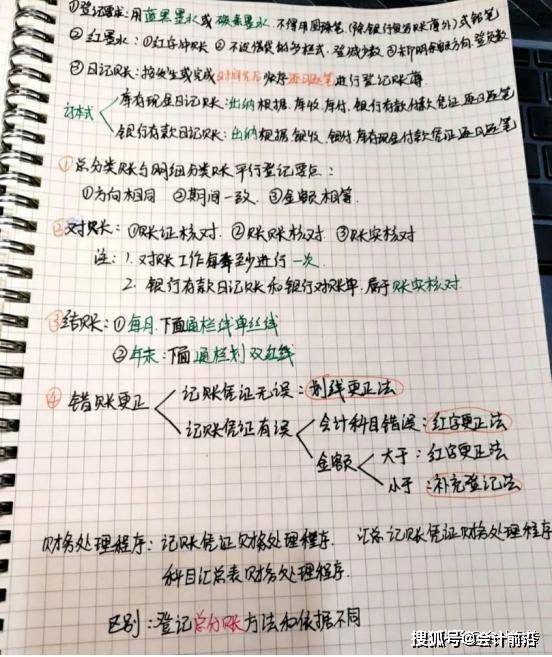 ①登记要求:用蓝黑墨水或碳素墨水.不得用圆珠笔(除银行复写账簿外)或铅笔
②红墨水:①红字冲账 ②不设借贷的多栏式.登减少数 ③未印明余额方向.登负数
③日记账:按发生或完成时间先后顺序逐日逐笔进行登记账簿
订本式
库存现金日记账:出纳根据.库收.库付.银行存款付款凭证逐日逐笔
银行存款日记账:出纳根据.银收.银付.库存现金付款凭证逐日逐笔
①总分类账与明细分类账平行登记要点:
①方向相同 ②期间一致 ③金额相等.
②对账:①账证核对.②账账核对.③账实核对
注:1.对账工作每年至少进行一次.
2.银行存款日记账和银行对账单.属于账实核对.
③结账:①每月.下面通栏线单红线
②年末:下面通栏划双红线
④错账更正
记账凭证无误:划线更正法
记账凭证有误
会计科目错误:红字更正法
金额
大于:红字更正法
小于:补充登记法
财务处理程序:记账凭证财务处理程序. 汇总记账凭证财务处理程序
科目汇总表财务处理程序.
区别:登记总分账方法和依据不同
搜狐号@会计前沿